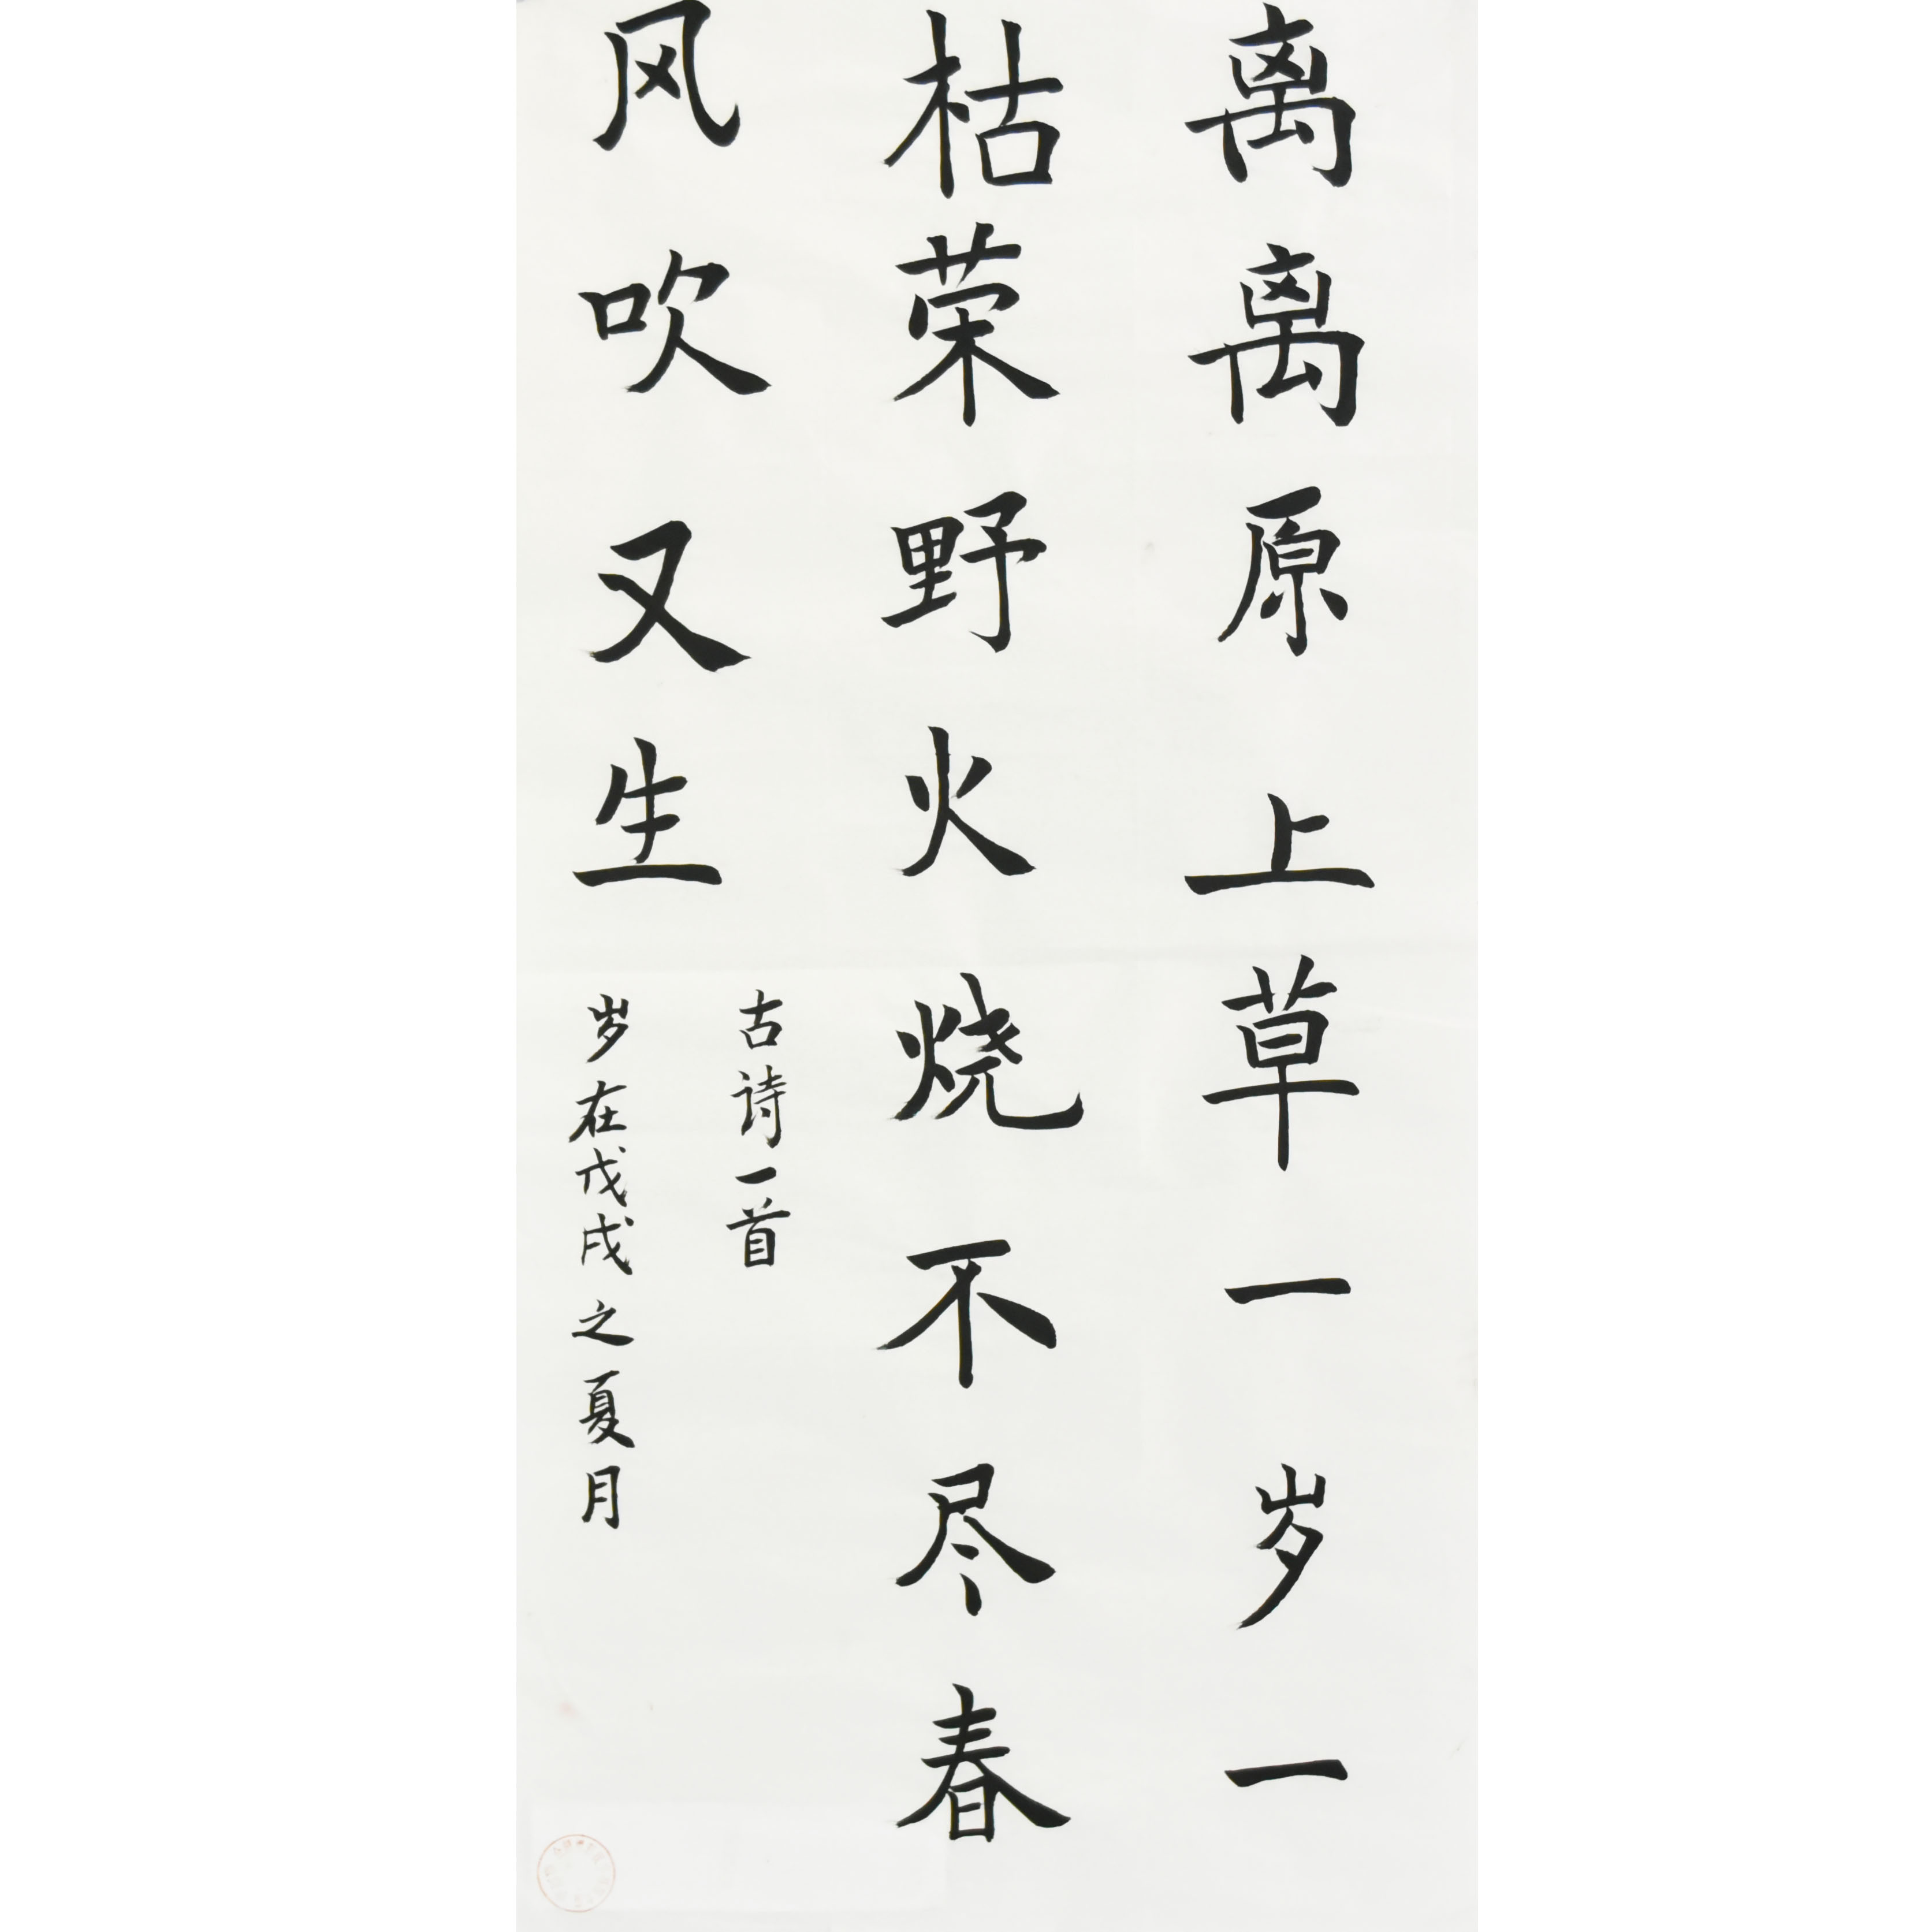 离离原上草一岁一
枯荣野火烧不尽春
风吹又生
古诗一首
岁在戊戌之夏月